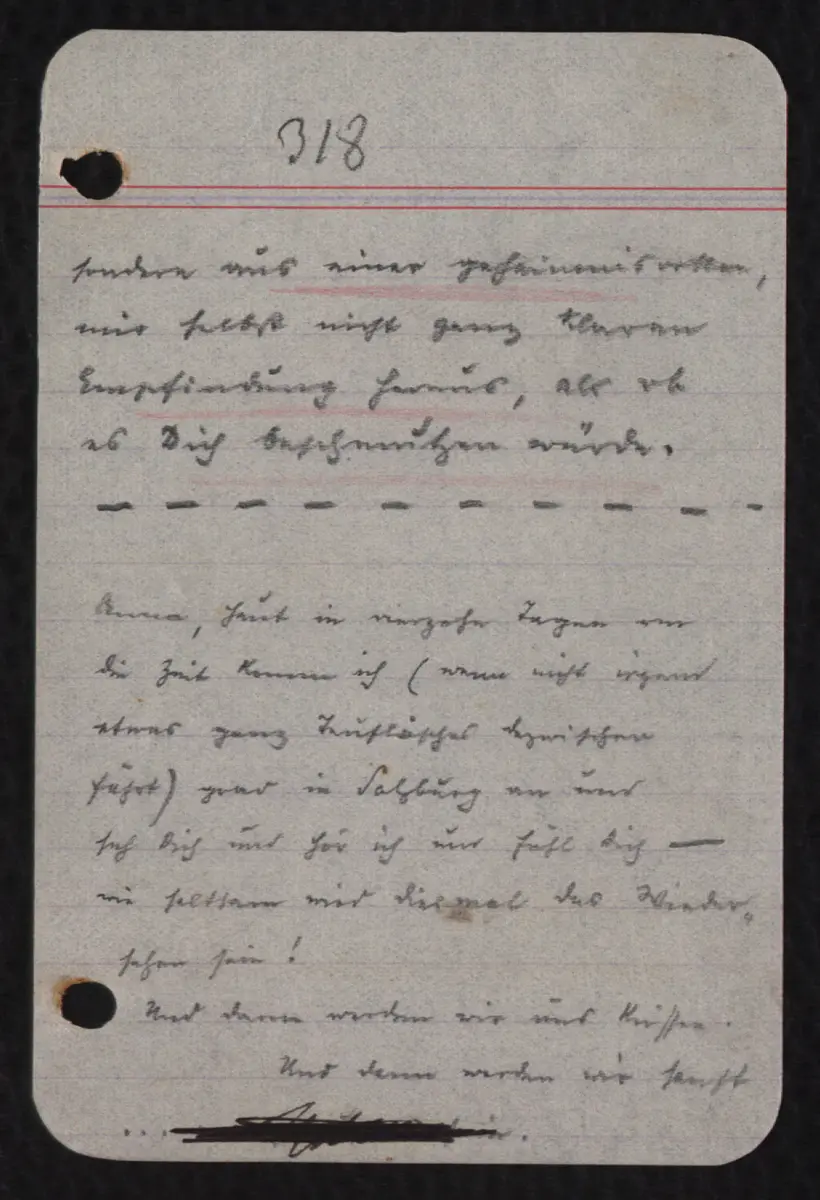 318
sondern aus einer geheimnisvollen,
mir selbst nicht ganz klaren
Empfindung heraus, als ob
es Dich beschmutzen würde.
— — — — — — — — — -
Anna, heut in vierzehn Tagen um
die Zeit komm ich (wenn nicht irgend
etwas ganz Teuflisches dazwischen
fährt) grad in Salzburg an und
seh Dich und hör ich und fühl Dich —
wie seltsam wird diesmal das Wieder-
sehen sein!
Und dann werden wir uns küssen.
Und dann werden wir sanft
...